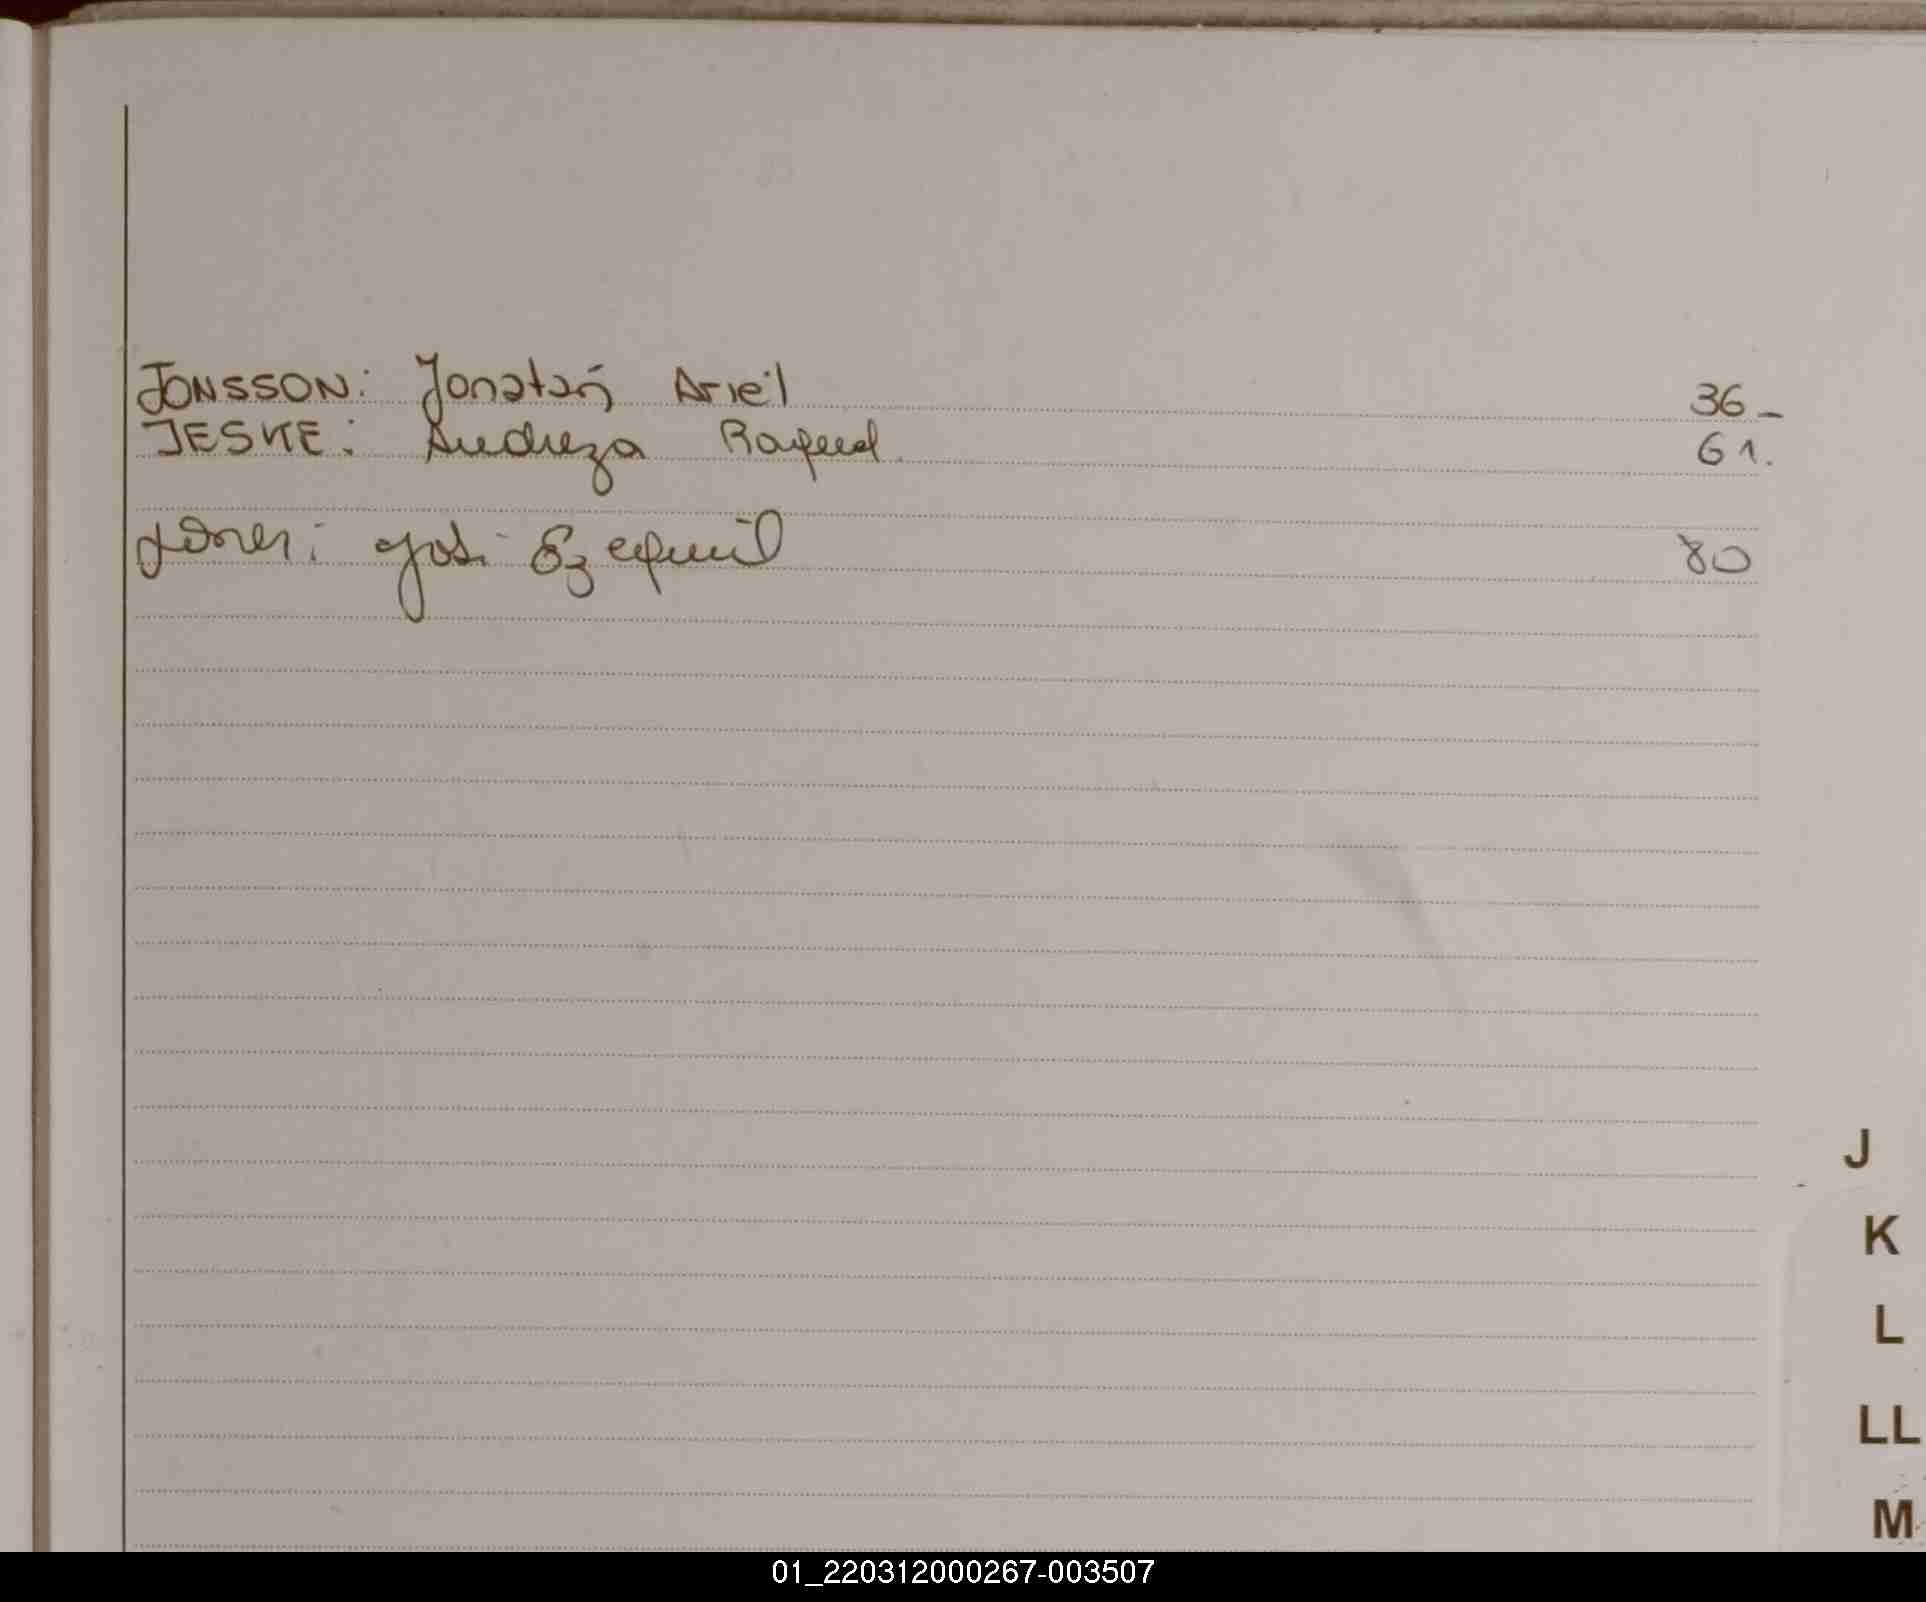 JONSSON: Jonatán Ariel 36_
JESKE: Andreza Raquel. 61.
José Ezequiel 80
J
K
L
LL
M
01_220312000267-003507